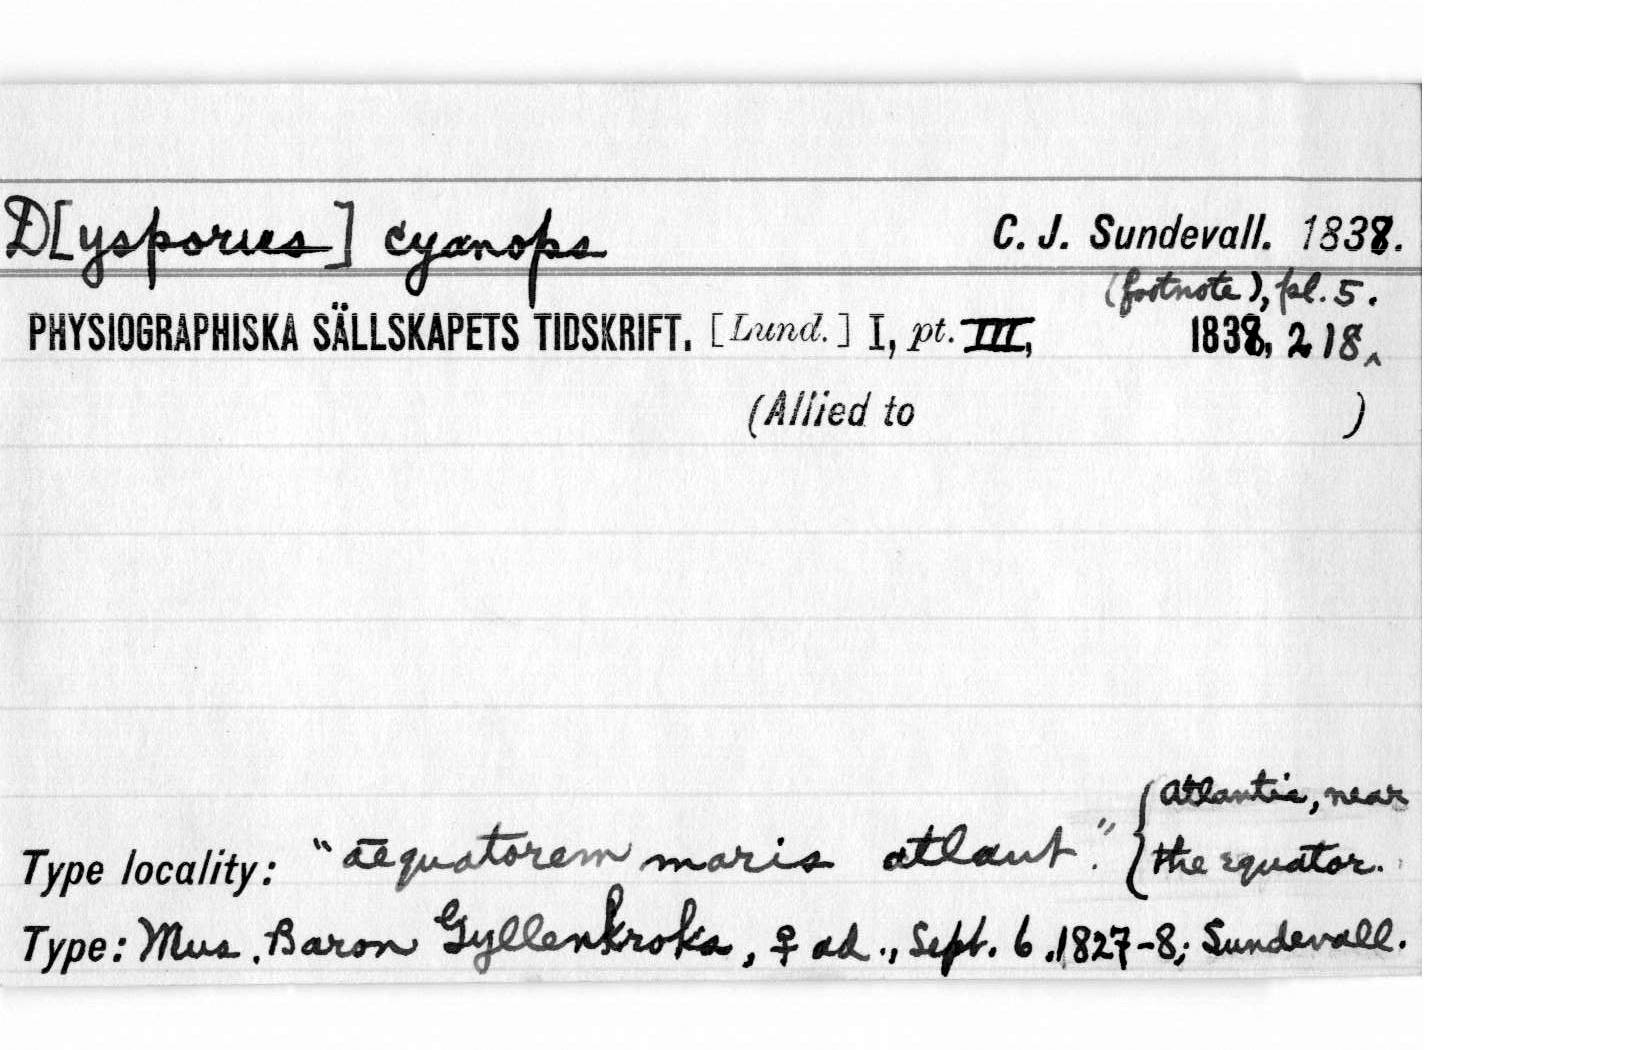 D[ysporus] cyanops C. J. Sundevall. 1838.
(footnote), pl. 5.
PHYSIOGRAPHISKA SÄLLSKAPETS TIDSKRIFT. [Lund.] I, pt. III, 1838, 218^
(Allied to )
Atlantic, near
Type locality: "aequatorem maris atlant." { the equator.
Type: Mus. Baron Gyllenkroks, ♀ ad., Sept. 6, 1827-8; Sundevall.